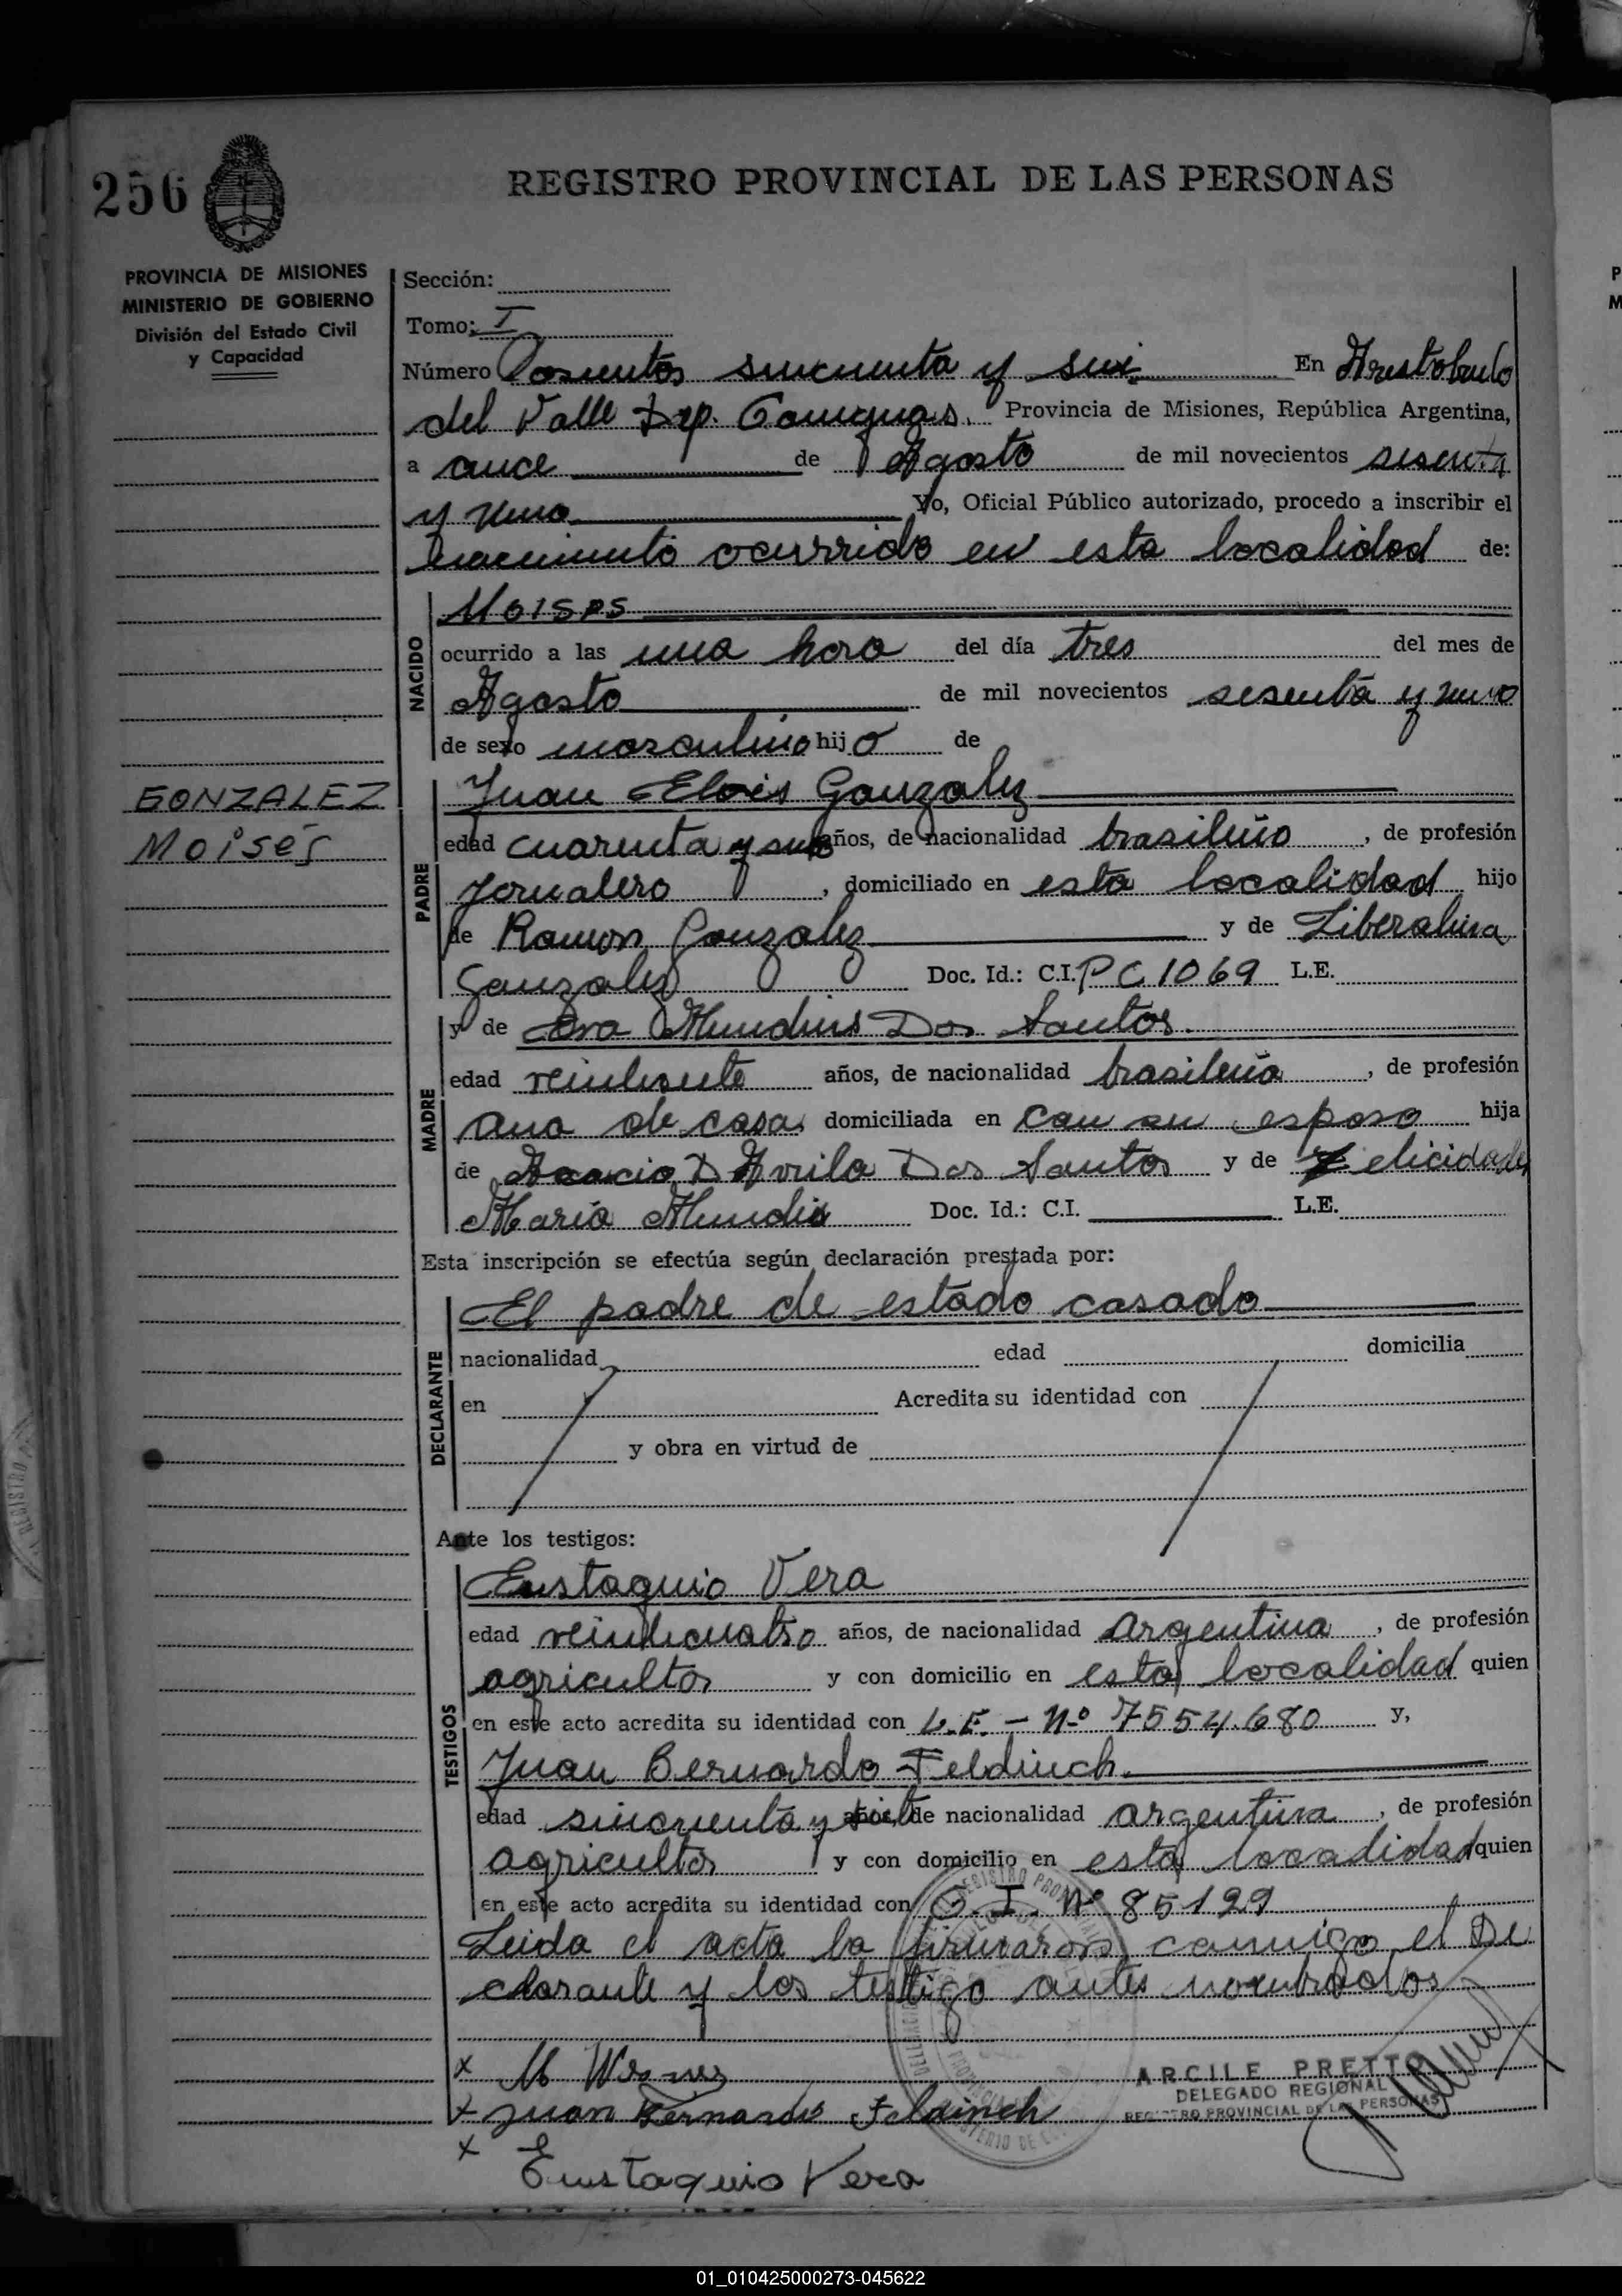 256
REGISTRO PROVINCIAL DE LAS PERSONAS
PROVINCIA DE MISIONES
MINISTERIO DE GOBIERNO
División del Estado Civil
y Capacidad
Sección:
Tomo: I
Número Dosientos sincuenta y seis En Aristobulo
del Valle Dep. Cainguas. Provincia de Misiones, República Argentina,
a once de Agosto de mil novecientos sesenta
y uno Yo, Oficial Público autorizado, procedo a inscribir el
nacimiento ocurrido en esta localidad de:
NACIDO
Moises
ocurrido a las una hora del día tres del mes de
Agosto de mil novecientos sesenta y uno
de sexo masculino hijo de
GONZALEZ
Moisés
PADRE
Juan Elois Gonzalez
edad cuarenta y años, de nacionalidad brasileño, de profesión
Jornalero, domiciliado en esta localidad hijo
de Ramon Gonzalez y de Liberalina
Gonzalez Doc. Id.: C.I. PC 1069 L.E.
MADRE
y de Mundis Dos Santos.
edad años, de nacionalidad brasileña, de profesión
ama de casa domiciliada en con su esposo hija
de Acacio D Avila Dos Santos y de Felicidade
Maria Mundis Doc. Id.: C.I. L.E.
Esta inscripción se efectúa según declaración prestada por:
DECLARANTE
El padre de estado casado
nacionalidad edad domicilia
en Acredita su identidad con
y obra en virtud de
Ante los testigos:
TESTIGOS
Eustaquio Vera
edad veinticuatro años, de nacionalidad argentina, de profesión
agricultor y con domicilio en esta localidad quien
en este acto acredita su identidad con L.E. - Nº 7554.680 y,
Juan Bernardo Feldinch.
edad sincuenta y siete años, de nacionalidad argentina, de profesión
agricultor y con domicilio en esta localidad quien
en este acto acredita su identidad con C.I. Nº 85199
Leida el acta la firmaron conmigo el De
clarante y los testigo antes nombrados
x
x Juan Bernardo Feldinch
ARCILE PRETTO
DELEGADO REGIONAL
REGISTRO PROVINCIAL DE LAS PERSONAS
x Eustaquio Vera
01_010425000273-045622